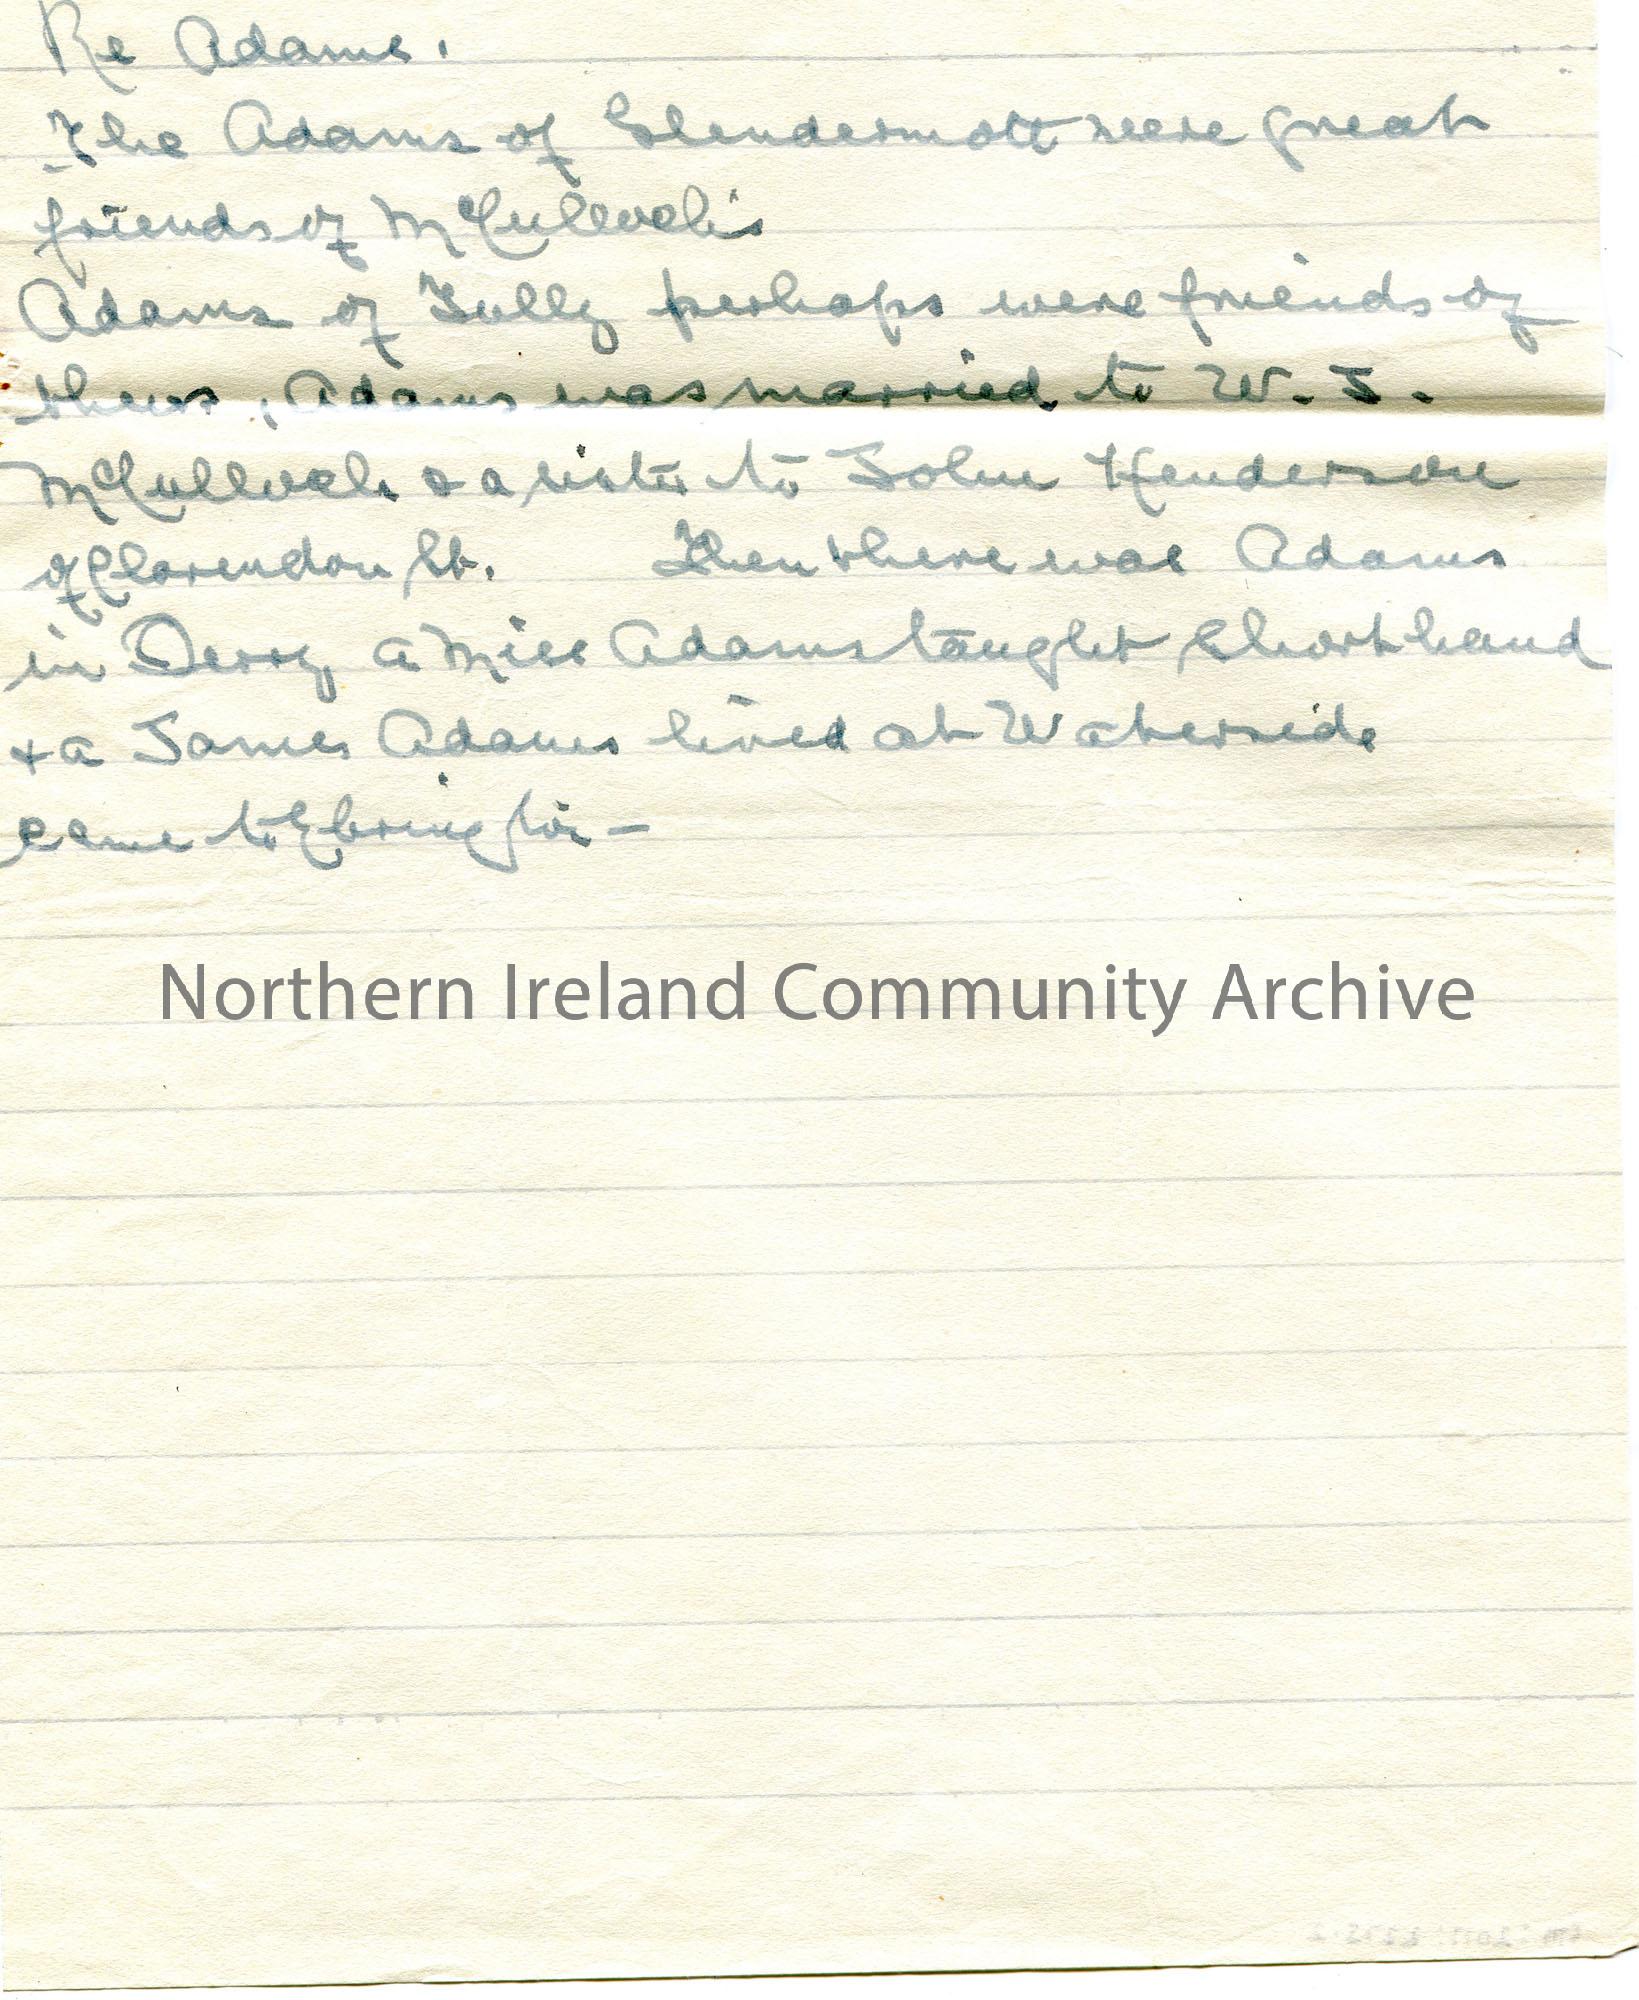 Re Adams.
The Adams of Glendermott were great
friends of McCulloch's
Adams of Tully perhaps were friends of
theirs, Adams was married to W. J.
McCulloch & a sister to John Henderson
of Clarendon St. Then there was Adams
in Derry a Miss Adams taught Shorthand
& a James Adams lived at Waterside
came to Ebrington –
Northern Ireland Community Archive